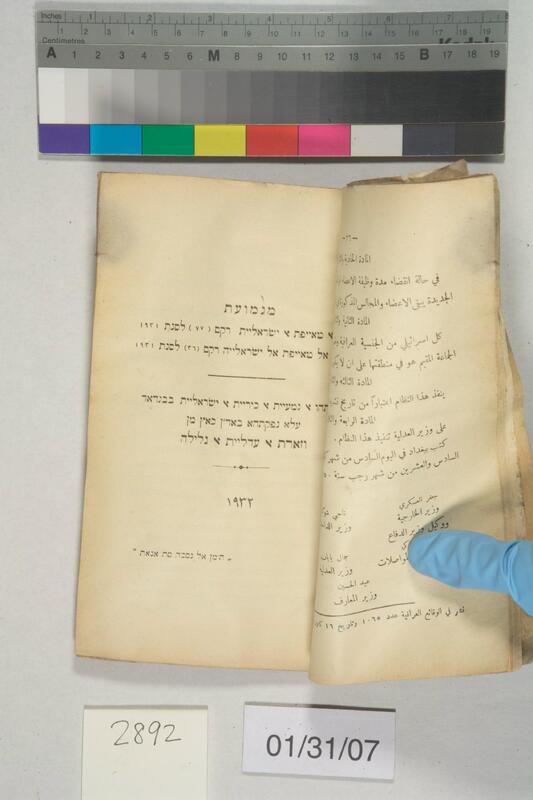 Inches 1 2 3 4 5 6 7
Centimetres
A 1 2 3 4 5 6 M 8 9 10 11 12 13 14 15 B 17 18 19
מגמועת
טאייפת א ישראלייה רקם (٧٧) לסנת ١٩٣١
אל טאייפת אל ישראלייה רקם (٣٦) לסנת ١٩٣١
גמעיית א כירייה א ישראלייה בבגדאד
עלא נפקתהא באדן כאץ מן
וזארת א עדלייה א גלילה
١٩٣٢
״ תימן אל נסכה סת אנאת ״
— ٢٦ —
في حالة انقضاء مدة وظيفة الاعضاء
الجديدة يبقى الاعضاء والمجالس المذكورة
المادة الثانية
كل اسرائيلي من الجنسية العراقية
الجماعة المقيم هو في منطقتها على ان
المادة الثالثة
ينفذ هذا النظام اعتباراً من تاريخ
المادة الرابعة
على وزير العدلية تنفيذ هذا النظام .
كتب ببغداد في اليوم السادس من شهر
السادس والعشرين من شهر رجب سنة
جعفر العسكري
وزير الخارجية
ووكيل وزير الدفاع
ناجي
وزير
جمال بابان
وزير العدلية
عبد الحسين
وزير المعارف
نشر في الوقائع العراقية عدد ١٠٦٥ وتاريخ ١٦
2892
01/31/07